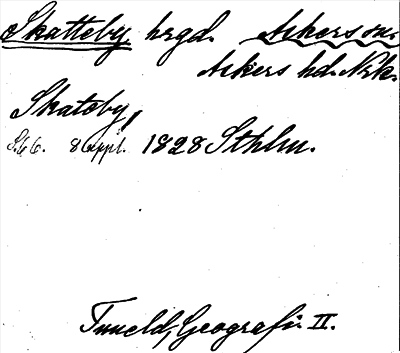 Skatteby hrgd. Askers sn.
Askers hd. Nrk.
Skateby,
S. 66. 8 uppl. 1828 Sthlm.
Tuneld, Geografi II.